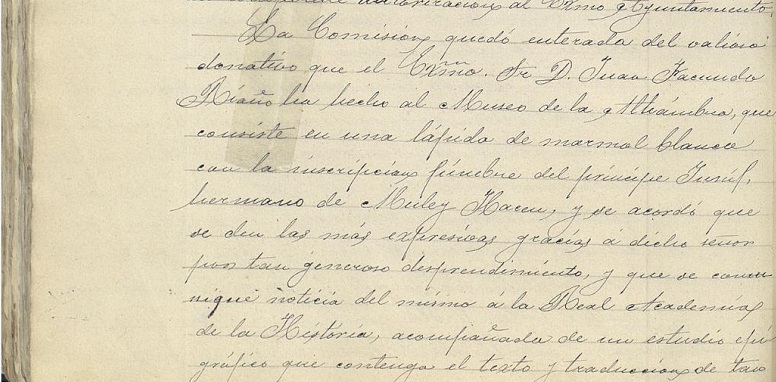 autorizacion al Excmo Ayuntamiento.
La Comision quedó enterada del valioso
donativo que el Exmo. Sr D. Juan Facundo
Riaño ha hecho al Museo de la Alhambra, que
consiste en una lápida de marmol blanco
con la inscripcion fúnebre del príncipe Jusúf,
hermano de Muley Hacen, y se acordó que
se den las más expresivas gracias á dicho señor
por tan generoso desprendimiento, y que se comu
nique noticia del mismo a la Real Academia
de la História, acompañada de un estudio epi
gráfico que contenga el texto y traduccion de tan